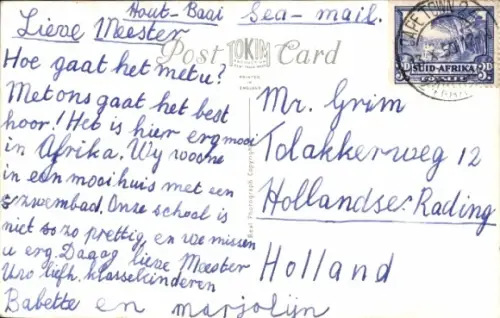 Hout-Baai Sea-mail.
Lieve Meester
Post TOKIM Card
PRINTED IN ENGLAND
CAPE TOWN
SUID-AFRIKA
3D 3D
POSTAGE
Hoe gaat het met u?
Met ons gaat het best
hoor! Het is hier erg mooi
in Afrika. Wy woone
in een mooi huis met een
zwembad. Onze school is
niet zo zo prettig en we missen
u erg. Dagag lieve Meester
Uw liefh. klassekinderen
Babette en marjolijn
Real Photograph Copyright
Mr. Grim
Tolakkerweg 12
Hollandse Rading
Holland